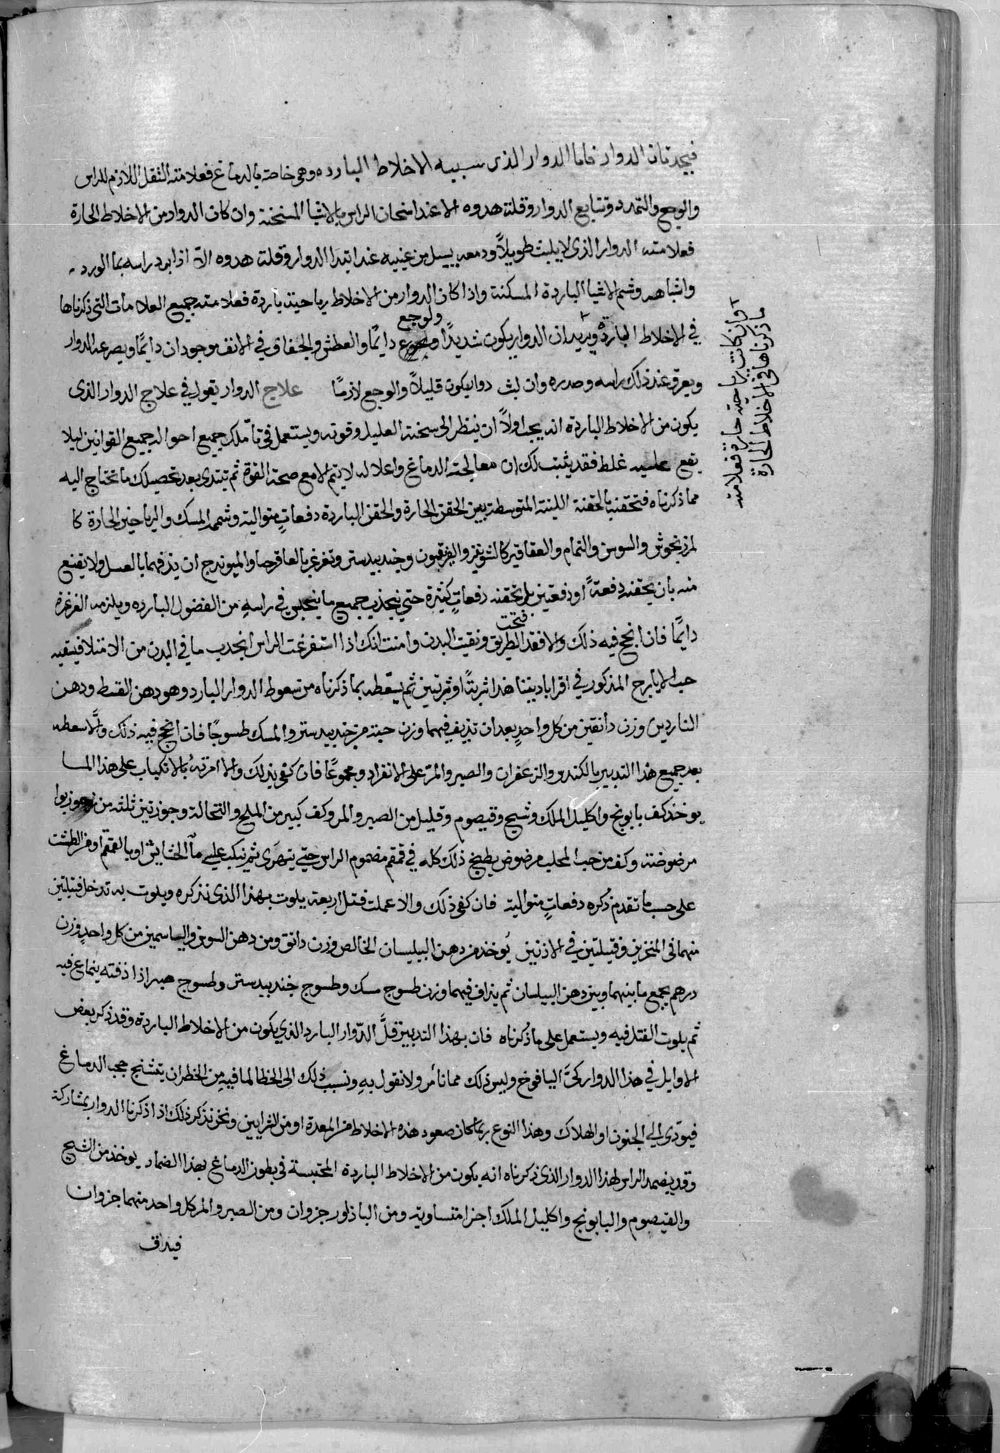 فيجدثان الدوار فاما الدوار الذى سببه الاخلاط البارده وهى خاصة بالدماغ فعلامته الثقل اللازم للراس
والوجع والتمدد وتتابع الدوار وقلة هدوه الا عند اسخان الراس بالاشيا المسخنة وان كان الدوار من الاخلاط الحارة
فعلامته الدوار الذى لا يلبث طويلاً ودمعه يسيل من عينيه عند ابتدا الدوار وقلت هدوه الا اذا برد راسه بما الورد
واشباهه وشم الاشيا الباردة المسكنة واذا كان الدوار من الاخلاط رياحية باردة فعلامته جميع العلامات التى ذكرناها
فى الاخلاط الباردة ويزيد ان الدوار يكون شديدًا ولوجع دايمًا والعطش والجفاف فى الانف موجودان دائمًا ويصرعه الدوار
ويعرق عند ذلك راسه وصدره وان لبث دوا يكون قليلاً والوجع لازمًا علاج الدوار يقول فى علاج الدوار الذى
يكون من الاخلاط الباردة انه يجب اولاً ان ينظر الى سحنة العليل وقوته ويستعمل فى تأملك جميع احواله جميع القوانين ليلا
يقع عليه غلط فقد يثبت لك ان معالجة الدماغ واعلاله لا يتم الا مع صحة القوة ثم تبتدى بعد تحصيلك ما تحتاج اليه
مما ذكرناه فتحقنه بالحقنة اللينة المتوسطة بين الحقن الحارة والحقن الباردة دفعات متوالية وشمه المسك والرياحين الحارة كا
لمرزنجوش والسوسن والنمام والعقاقير كالشونيز والفرفيون وجندبيدستر وتغرغر بالعاقرقرحا والميويزج ان يذ فهما بالعسل ولا يقنع
منه بان يحقنه دفعةً او دفعتين بل تحقنه دفعاتٍ كثيرة حتى ينجذب جميع ما ينجلب فى راسه من الفضول البارده ويلزمه الغرغرة
دايمًا فان انجح فيه ذلك والا فقد فتحت الطريق ونقيت البدن وامنت انك اذا استفرغت الراس انجذب ما فى البدن من الامتلا فيسقيه
حب الايارج المذكور فى اقرابادينا هذا شربتًا او شربتين ثم يسقطه بما ذكرناه من سعوط الدوار البارد وهو دهن القسط ودهن
الناردين وزن دانقين من كل واحدٍ بعد ان تذيف فيهما وزن حبة من جندبيدستر والمسك طسوجًا فان انجح فيه ذلك والا سعطه
بعد جميع هذا التدبير بالكندر والزعفران والصبر والمر على الانفراد ومجموعًا فان كفى بذلك والا امرته بالانكباب على هذا الما
يوخذ كف بابونج واكليل الملك وشيح وقيصوم وقليل من الصبر والمر وكف كبير من الملح والنخالة وجوزتين ثلثه من جوز بوا
مرضوضة وكف من حب المحلب مرضوض يطبخ ذلك كله فى قمقم مضموم الراس حتى يتهرى ثم ينكب على ماء الحشايش او بالقمقم او من الطشت
على حسب ما تقدم ذكره دفعاتٍ متوالية فان كفى ذلك والا عملت فتل اربعة يلوت بهذا الذى نذكره ويلوت به تدخل فتيلتين
منهما فى المنخرين وفتيلتين فى الاذنين يوخذ من دهن البيلسان الخالص وزن دانق ومن دهن السوسن والياسمين من كل واحدٍ وزن
درهم يجمع ما بينهما وبين دهن البيلسان ثم يذاف فيهما وزن طسوج مسك وطسوج جندبيدستر وطسوج صبر اذا ذفته ينماع فيه
ثم يلوت الفتل فيه ويستعمل على ما ذكرناه فان بهذا التدبير قل الدوار البارد الذى يكون من الاخلاط الباردة وقد ذكر بعض
الاوايل فى هذا الدوار كى اليافوخ وليس ذلك مما نأمر ولا نقول به ونسب ذلك الى الخطا لما فيه من الخطر ان يتشنج حجب الدماغ
فيودى الى الجنون او الهلاك وهذا النوع ربما كان صعود هذه الاخلاط من المعدة او من الشرايين ونحن نذكر ذلك اذا ذكرنا الدوار بمشاركة
وقد يضمد الراس لهذا الدوار الذى ذكرناه انه يكون من الاخلاط الباردة المحتبسة فى بطون الدماغ بهذا الضماد يوخذ من الشيح
والقيصوم والبابونج واكليل الملك اجزا متساوية ومن الباذاور جزوان ومن الصبر والمر كل واحد منهما جزوان
فيداف
وان كانت رياحية حارة فعلامته
ما ذكرناها فى الاخلاط الحارة